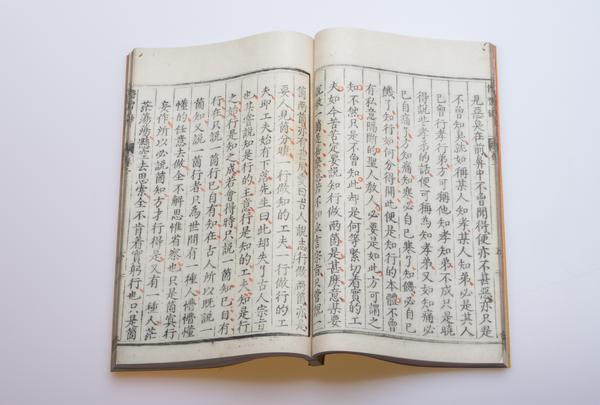 見惡臭在前鼻中不曾聞得便亦不甚惡亦只是
不曾知臭就如稱某人知孝某人知弟必是其人
已曾行孝行弟方可稱他知孝知弟不成只是曉
得說些孝弟的話便可稱為知孝弟又如知痛必
已自痛了方知痛知寒必已自寒了知饑必已自
饑了知行如何分得開此便是知行的本體不曾
有私意隔斷的聖人教人必要是如此方可謂之
知不然只是不曾知此却是何等緊切着實的工
夫如今苦苦定要說知行做兩箇是甚麽意某要
說做一箇是甚麽意若不知立言宗旨只管說一
箇兩箇亦有甚用愛曰古人說知行做兩箇亦是
要人見箇分曉一行做知的工夫一行做行的工
夫即工夫始有下落先生曰此却失了古人宗旨
也某嘗說知是行的主意行是知的工夫知是行
之始行是知之成若會得時只說一箇知已自有
行在只說一箇行已自有知在古人所以既說一
箇知又說一箇行者只為世間有一種人懵懵懂
懂的任意去做全不解思惟省察也只是箇冥行
妄作所以必說箇知方才行得是又有一種人茫
茫蕩蕩懸空去思索全不肯着實躬行也只是箇